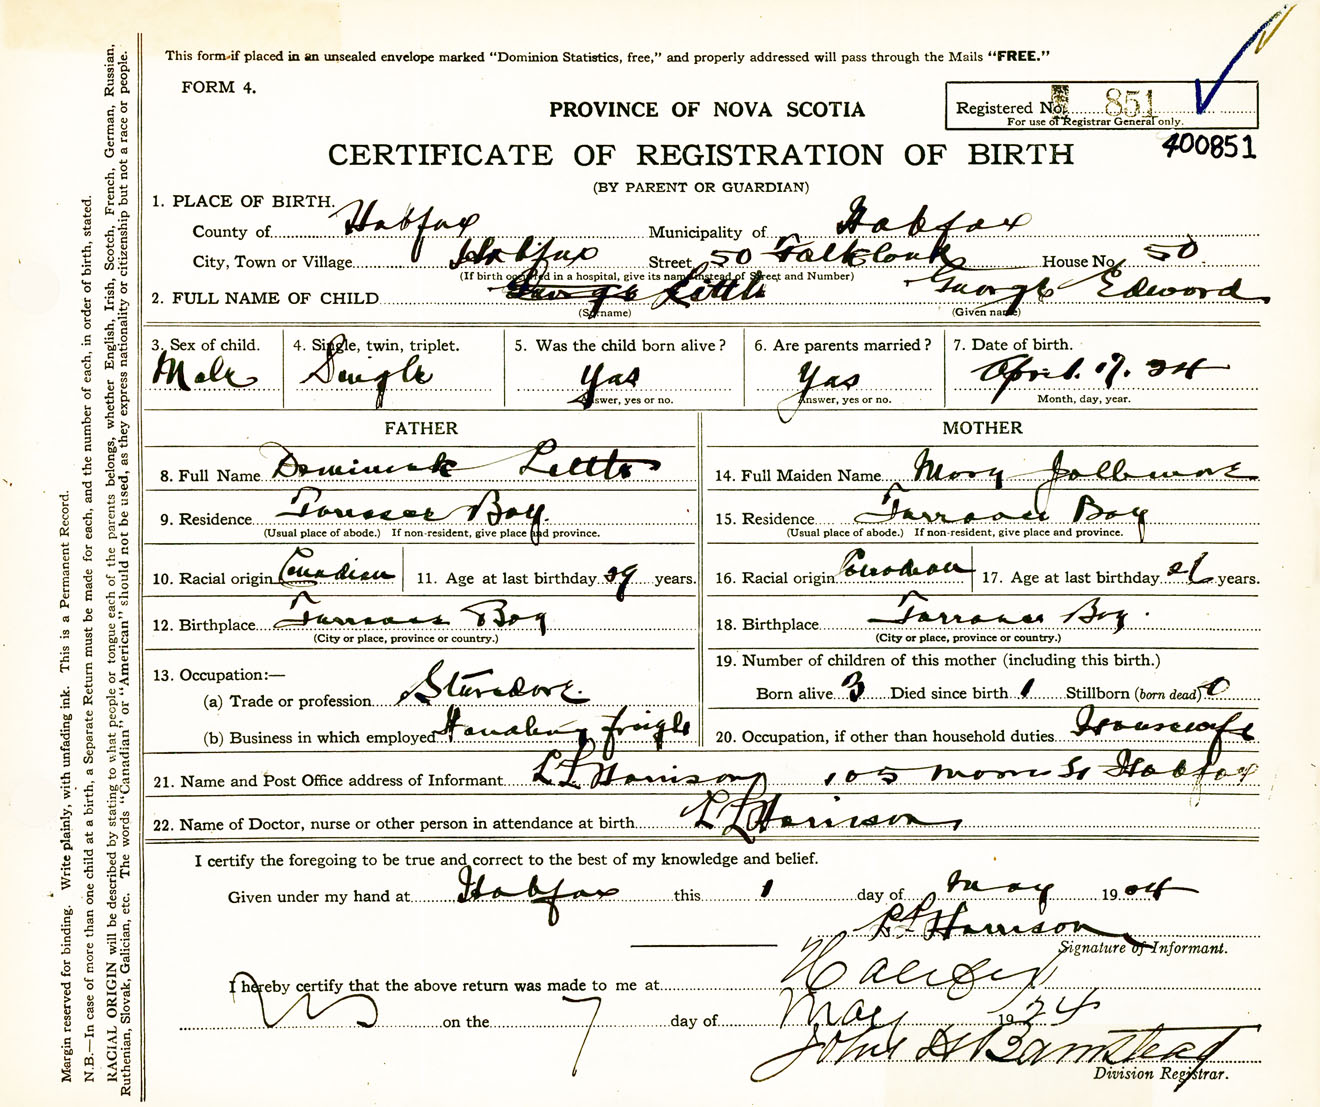 This form if placed in an unsealed envelope marked "Dominion Statistics, free," and properly addressed will pass through the Mails "FREE."
FORM 4.
Registered No. 851
For use of Registrar General only.
400851
PROVINCE OF NOVA SCOTIA
CERTIFICATE OF REGISTRATION OF BIRTH
(BY PARENT OR GUARDIAN)
1. PLACE OF BIRTH.
County of Halifax Municipality of Halifax
City, Town or Village Halifax Street 50 House No. 50
(If birth occurred in a hospital, give its name instead of Street and Number)
2. FULL NAME OF CHILD Little George Edward
(Surname) (Given name)
3. Sex of child. 4. Single, twin, triplet. 5. Was the child born alive? 6. Are parents married? 7. Date of birth.
Male Single Yas Yas April 17. 24
Answer, yes or no. Answer, yes or no. Month, day, year.
FATHER MOTHER
8. Full Name Dominick Little 14. Full Maiden Name Mary
9. Residence Bay. 15. Residence Bay
(Usual place of abode.) If non-resident, give place and province. (Usual place of abode.) If non-resident, give place and province.
10. Racial origin Canadian 11. Age at last birthday 29 years. 16. Racial origin Canadian 17. Age at last birthday 21 years.
12. Birthplace Bay 18. Birthplace Bay.
(City or place, province or country.) (City or place, province or country.)
13. Occupation:— 19. Number of children of this mother (including this birth.)
(a) Trade or profession Born alive 3 Died since birth 1 Stillborn (born dead) 0
(b) Business in which employed Handling 20. Occupation, if other than household duties Housewife
21. Name and Post Office address of Informant L L Harrison 105 St Halifax
22. Name of Doctor, nurse or other person in attendance at birth L L Harrison
I certify the foregoing to be true and correct to the best of my knowledge and belief.
Given under my hand at Halifax this 1 day of May 1924
L L Harrison
Signature of Informant.
I hereby certify that the above return was made to me at Halifax
on the 7 day of May 1924
John H Barnstead
Division Registrar.
Margin reserved for binding. Write plainly, with unfading ink. This is a Permanent Record.
N.B.—In case of more than one child at a birth, a Separate Return must be made for each, and the number of each, in order of birth, stated.
RACIAL ORIGIN will be described by stating to what people or tongue each of the parents belongs, whether English, Irish, Scotch, French, German, Russian,
Ruthenian, Slovak, Galician, etc. The words "Canadian" or "American" should not be used, as they express nationality or citizenship but not a race or people.